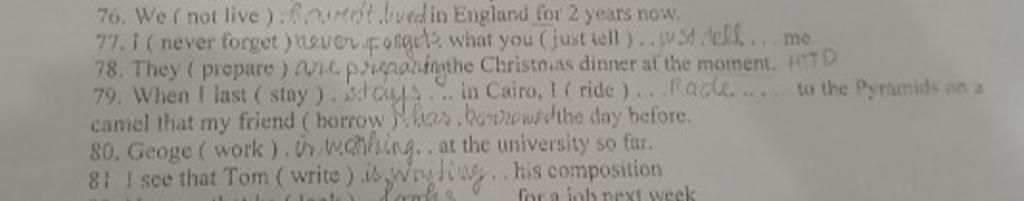 76. We ( not live ) . haven't lived in England for 2 years now.
77. I ( never forget ) never forgets what you ( just tell ) . . just tell . . . me
78. They ( prepare ) are preparing the Christmas dinner at the moment. HTTD
79. When I last ( stay ) . stays . .. in Cairo, I ( ride ) . . . Rode .... to the Pyramids on a
camel that my friend ( borrow ) has borrowed the day before.
80. Geoge ( work ) . is working. . at the university so far.
81 I see that Tom ( write ) is writing . . his composition
for a job next week